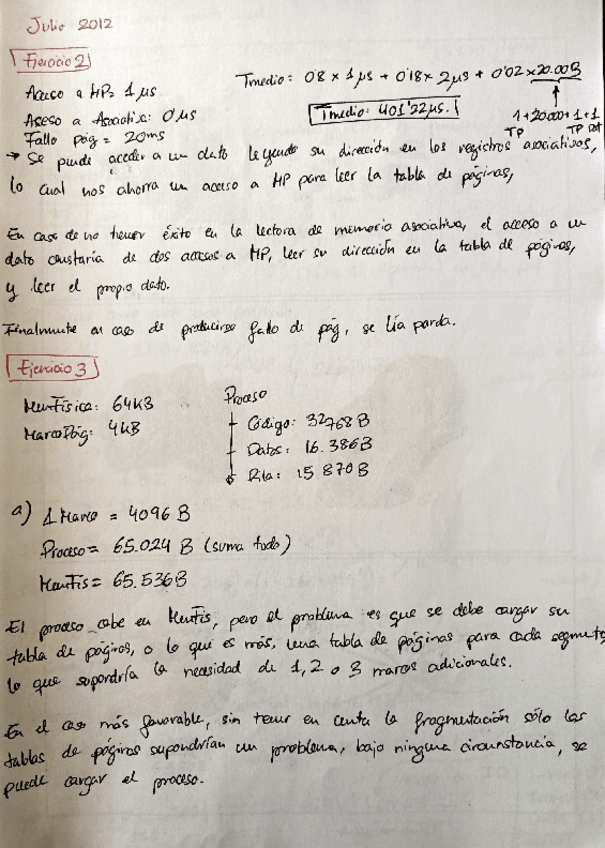 Julio 2012
Ejercicio 2)
Acceso a MP= 1 µs
Aseso a Asociativ: 0 µs
Fallo pág = 20ms
Tmedio: 0'8 x 1 µs + 0'18x 2µs + 0'02 x 20.003
Tmedio: 401'22µs.
1+20000+1+1
TP TP Dat
→ Se puede acceder a un dato leyendo su dirección en los registros asociativos,
lo cual nos ahorra un acceso a MP para leer la tabla de páginas,
En caso de no tener éxito en la lectora de memoria asociativa, el acceso a un
dato constaría de dos accesos a MP, leer su dirección en la tabla de páginas,
y leer el propio dato.
Finalmente en caso de producirse fallo de pág, se lía parda.
Ejercicio 3
MemFísica: 64KB
MarcoPág: 4KB
Proceso
Código: 32768 B
Datos: 16.386B
Pila: 15870B
a) 1 Marco = 4096 B
Proceso= 65.024 B (suma todo)
MemFis= 65.536B
El proceso cabe en MemFis, pero el problema es que se debe cargar su
tabla de páginas, o lo que es más, una tabla de páginas para cada segmento
lo que supondría la necesidad de 1, 2 o 3 marcos adicionales.
En el caso más favorable, sin tener en cuenta la fragmentación sólo las
tablas de páginas supondrían un problema, bajo ninguna circunstancia, se
puede cargar el proceso.